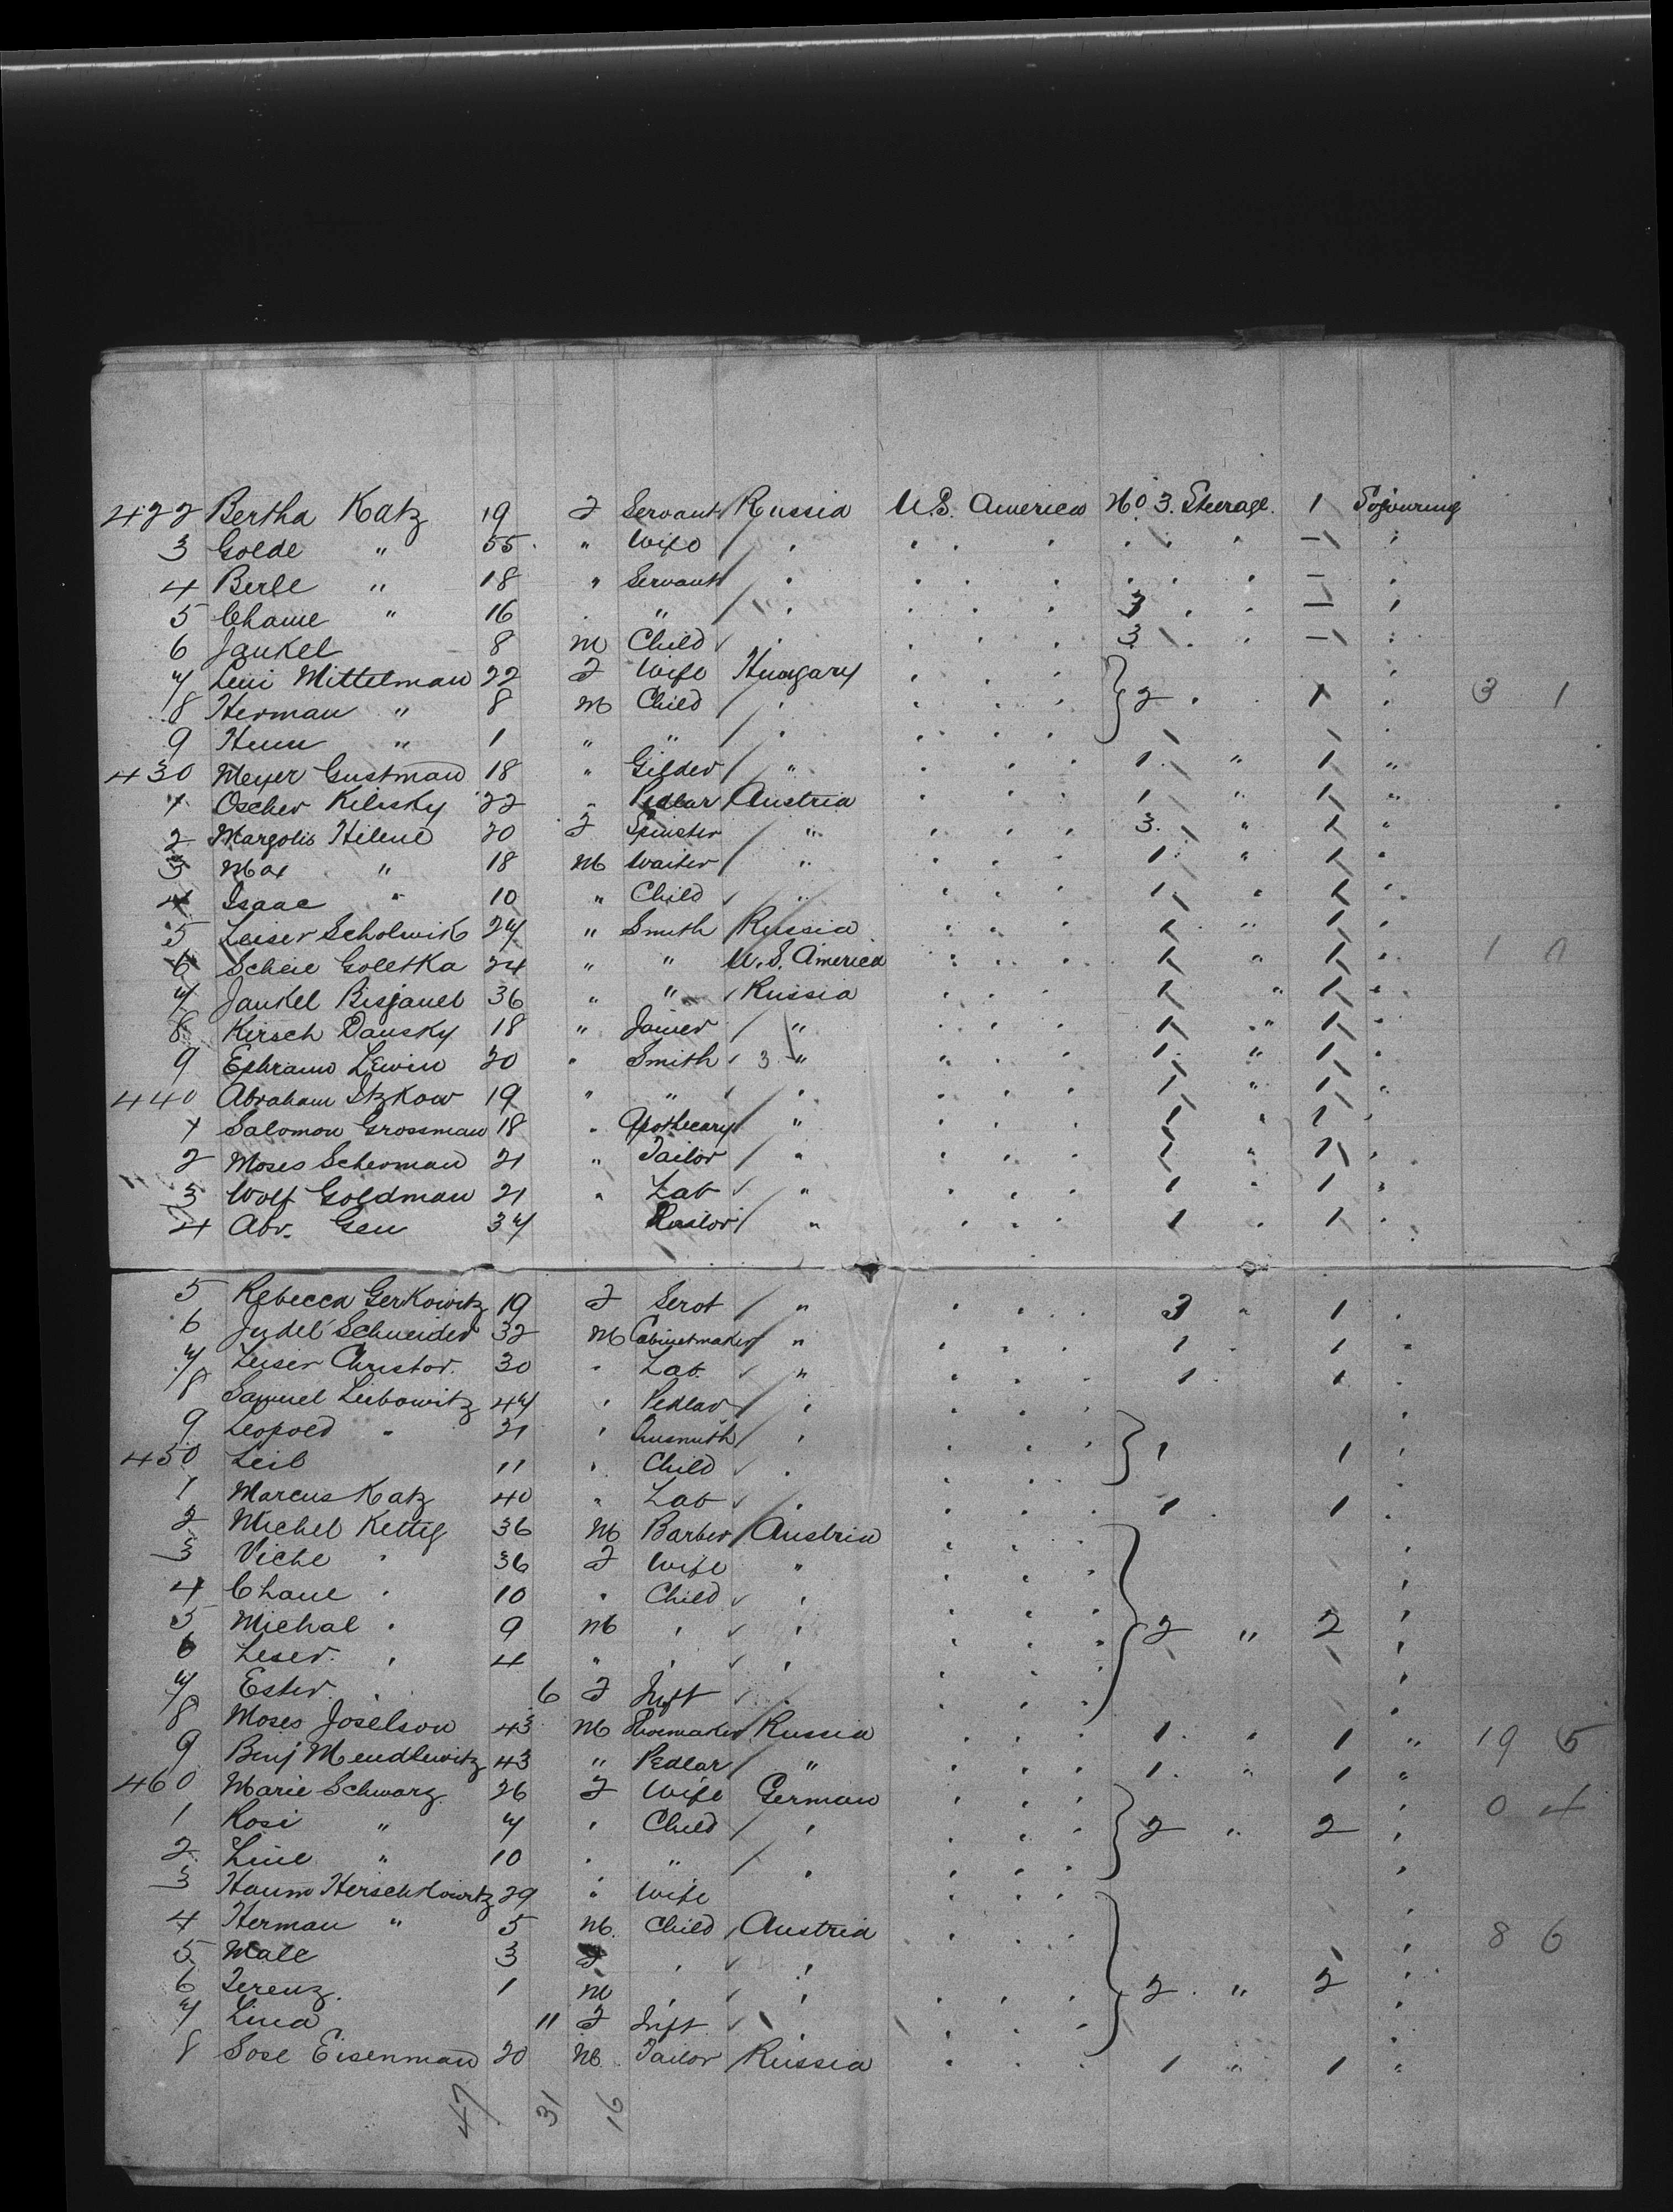 422 Bertha Katz 19 F Servant Russia U.S. America No 3. Steerage. 1 Sojourning
3 Golde " 55 " Wife " " " " — "
4 Berle " 18 " Servant " " " " — "
5 Chame " 16 " " " " " 3 " — "
6 Jankel 8 M Child " " " 3 " — "
7 Leni Mittelman 22 F Wife Hungary " " "
8 Herman " 8 M Child " " " 2 " 1 " 3 1
9 " 1 " " " " "
430 Meyer Gustman 18 " Gilder " " " 1 " 1 "
1 Oscher Kilisky 22 " Pedlar Austria " " 1 " 1 "
2 Margolis Helene 20 F Spinster " " " 3. " 1 "
3 Max " 18 M Waiter " " " 1 " 1 "
4 Isaac " 10 " Child " " " 1 " 1 "
5 Leiser Scholwik 27 " Smith Russia " " 1 " 1 "
6 Scheie Goletka 24 " " U.S. America " " 1 " 1 " 1
7 Jankel Bisjaueb 36 " " Russia " " 1 " 1 "
8 Kirsch Dansky 18 " Joiner " " " 1 " 1 "
9 Ephraim Lewin 20 " Smith 3 " " " 1 " 1 "
440 Abraham Itzkow 19 " " " " " 1 " 1 "
1 Salomon Grossman 18 " Apothecary " " " 1 " 1 "
2 Moses Scherman 21 " Tailor " " " 1 " 1 "
3 Wolf Goldman 21 " Lab " " " 1 1 "
4 Abr. Gen 37 " " " 1 " 1 "
5 Rebecca Gerkowitz 19 F Servt " " " 3 " 1 "
6 Judel Schneider 32 M Cabinetmaker " " " 1 " 1 "
7 Leiser Christor. 30 " Lab. " " " 1 " 1 "
8 Samuel Leibowitz 47 " Pedlar " " "
9 Leopold " 21 " " " " 1 1 "
450 Leib 11 " Child " " "
1 Marcus Katz 40 " Lab " " " 1 " 1 "
2 Michel Kettig 36 M Barber Austria " "
3 Viche " 36 F Wife " " "
4 Chane " 10 " Child " " "
5 Michal " 9 M " " " " 2 " 2 "
6 Leser. " 4 " " " " "
7 Ester. " 6 F Inft " " "
8 Moses Joselson 43 M Shoemaker Russia " " 1 " 1 " 19 5
9 Benj Mendlewitz 43 " Pedlar " " " 1 " 1 "
460 Marie Schwarz 26 F Wife German " " 0 4
1 Rosi " 7 " Child " " " 2 " 2 "
2 Line " 10 " " " " "
3 Haum Herschkowitz 29 " Wife " "
4 Herman " 5 M. Child Austria " " 8 6
5 Male 3 F " " " "
6 Terenz. 1 M " " " " 2 " 2 "
7 Lina 11 F Inft " " "
8 Sose Eisenman 20 M. Tailor Russia " " 1 " 1 "
47 31 16